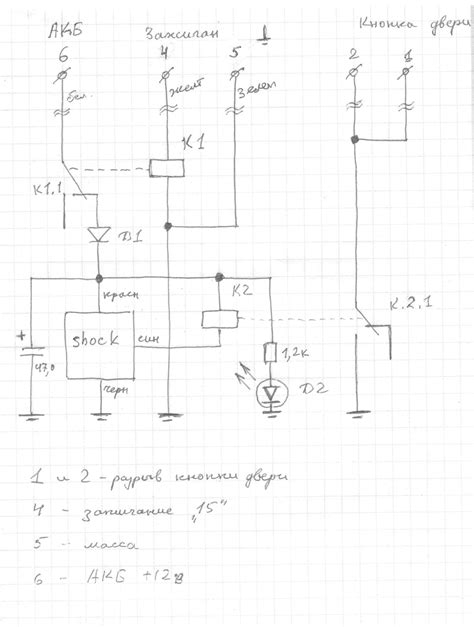 АКБ
Зажиган
Кнопка двери
6
4
5
2
1
бел
желт
Зелен
К1
К1.1
D1
К2
К.2.1
красн
shock
син
+
47,0
черн
1,2к
D2
1 и 2 - разрыв кнопки двери
4 - Зажигание „15"
5 - масса
6 - АКБ +12в